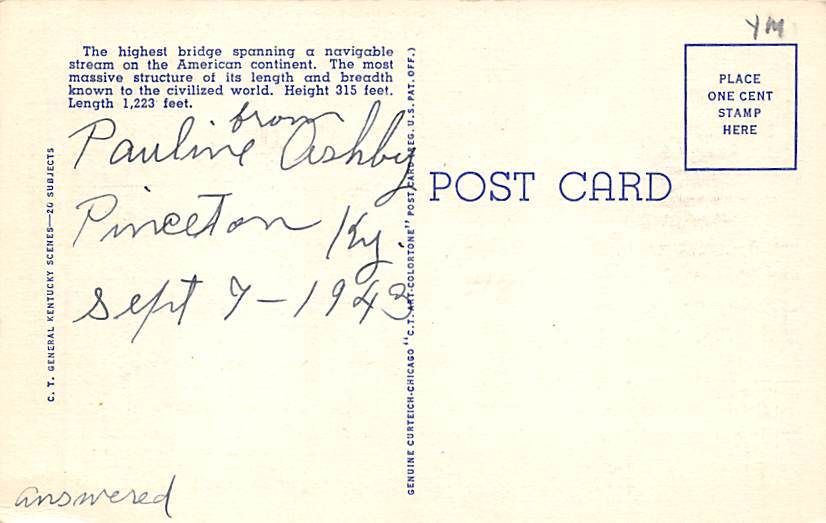 YM
The highest bridge spanning a navigable
stream on the American continent. The most
massive structure of its length and breadth
known to the civilized world. Height 315 feet.
Length 1,223 feet.
PLACE
ONE CENT
STAMP
HERE
from
Pauline Ashby
Pinceton Ky.
Sept 7-1943
POST CARD
answered
C. T. GENERAL KENTUCKY SCENES—20 SUBJECTS
GENUINE CURTEICH-CHICAGO "C.T. ART-COLORTONE" POST CARD (REG. U.S. PAT. OFF.)